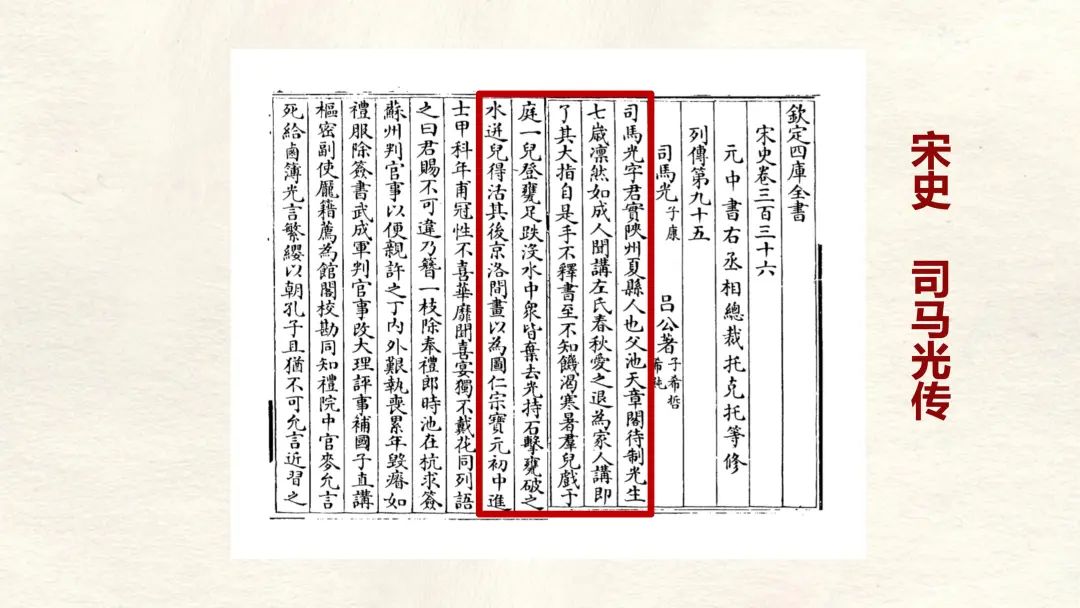 宋史 司马光传
欽定四庫全書
宋史卷三百三十六
元中書右丞相總裁托克托等修
列傳第九十五
司馬光子康 呂公著子希哲希純
司馬光字君實陝州夏縣人也父池天章閣待制光生
七嵗凛然如成人聞講左氏春秋愛之退為家人講即
了其大指自是手不釋書至不知饑渴寒暑羣兒戲于
庭一兒登甕足跌沒水中衆皆棄去光持石擊甕破之
水迸兒得活其後京洛間畫以為圖仁宗寶元初中進
士甲科年甫冠性不喜華靡聞喜宴獨不戴花同列語
之曰君賜不可違乃簪一枝除奉禮郎時池在杭求簽
蘇州判官事以便親許之丁内外艱執喪累年毀瘠如
禮服除簽書武成軍判官事改大理評事補國子直講
樞密副使龐籍薦為館閣校勘同知禮院中官麥允言
死給鹵簿光言繁纓以朝孔子且猶不可允言近習之